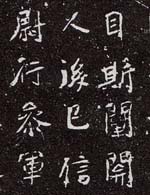 目斯開
人後已信
尉行叅軍